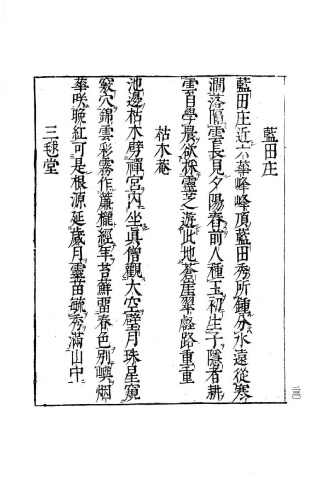 藍田庄
藍田庄近太華峰峰頂藍田秀所鍾分水遠從寒
澗落隔雲長見夕陽舂前人種玉初生子隱者耕
雲自學農欲採靈芝遊此地蒼崖翠巘路重重
枯木菴
池邊枯木劈禪宮內坐眞僧觀大空璧月珠星窺
竅穴錦雲彩霧作簾櫳經年苔蘚畱春色別嶼烟
華咲晚紅可是根源延歲月靈苗毓秀滿山中
三毬堂